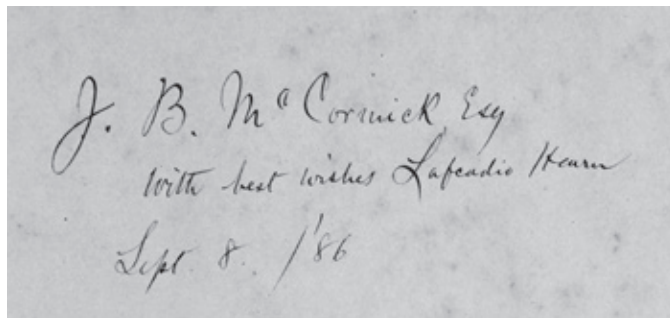 J. B. McCormick Esq
with best wishes Lafcadio Hearn
Sept. 8. /'86